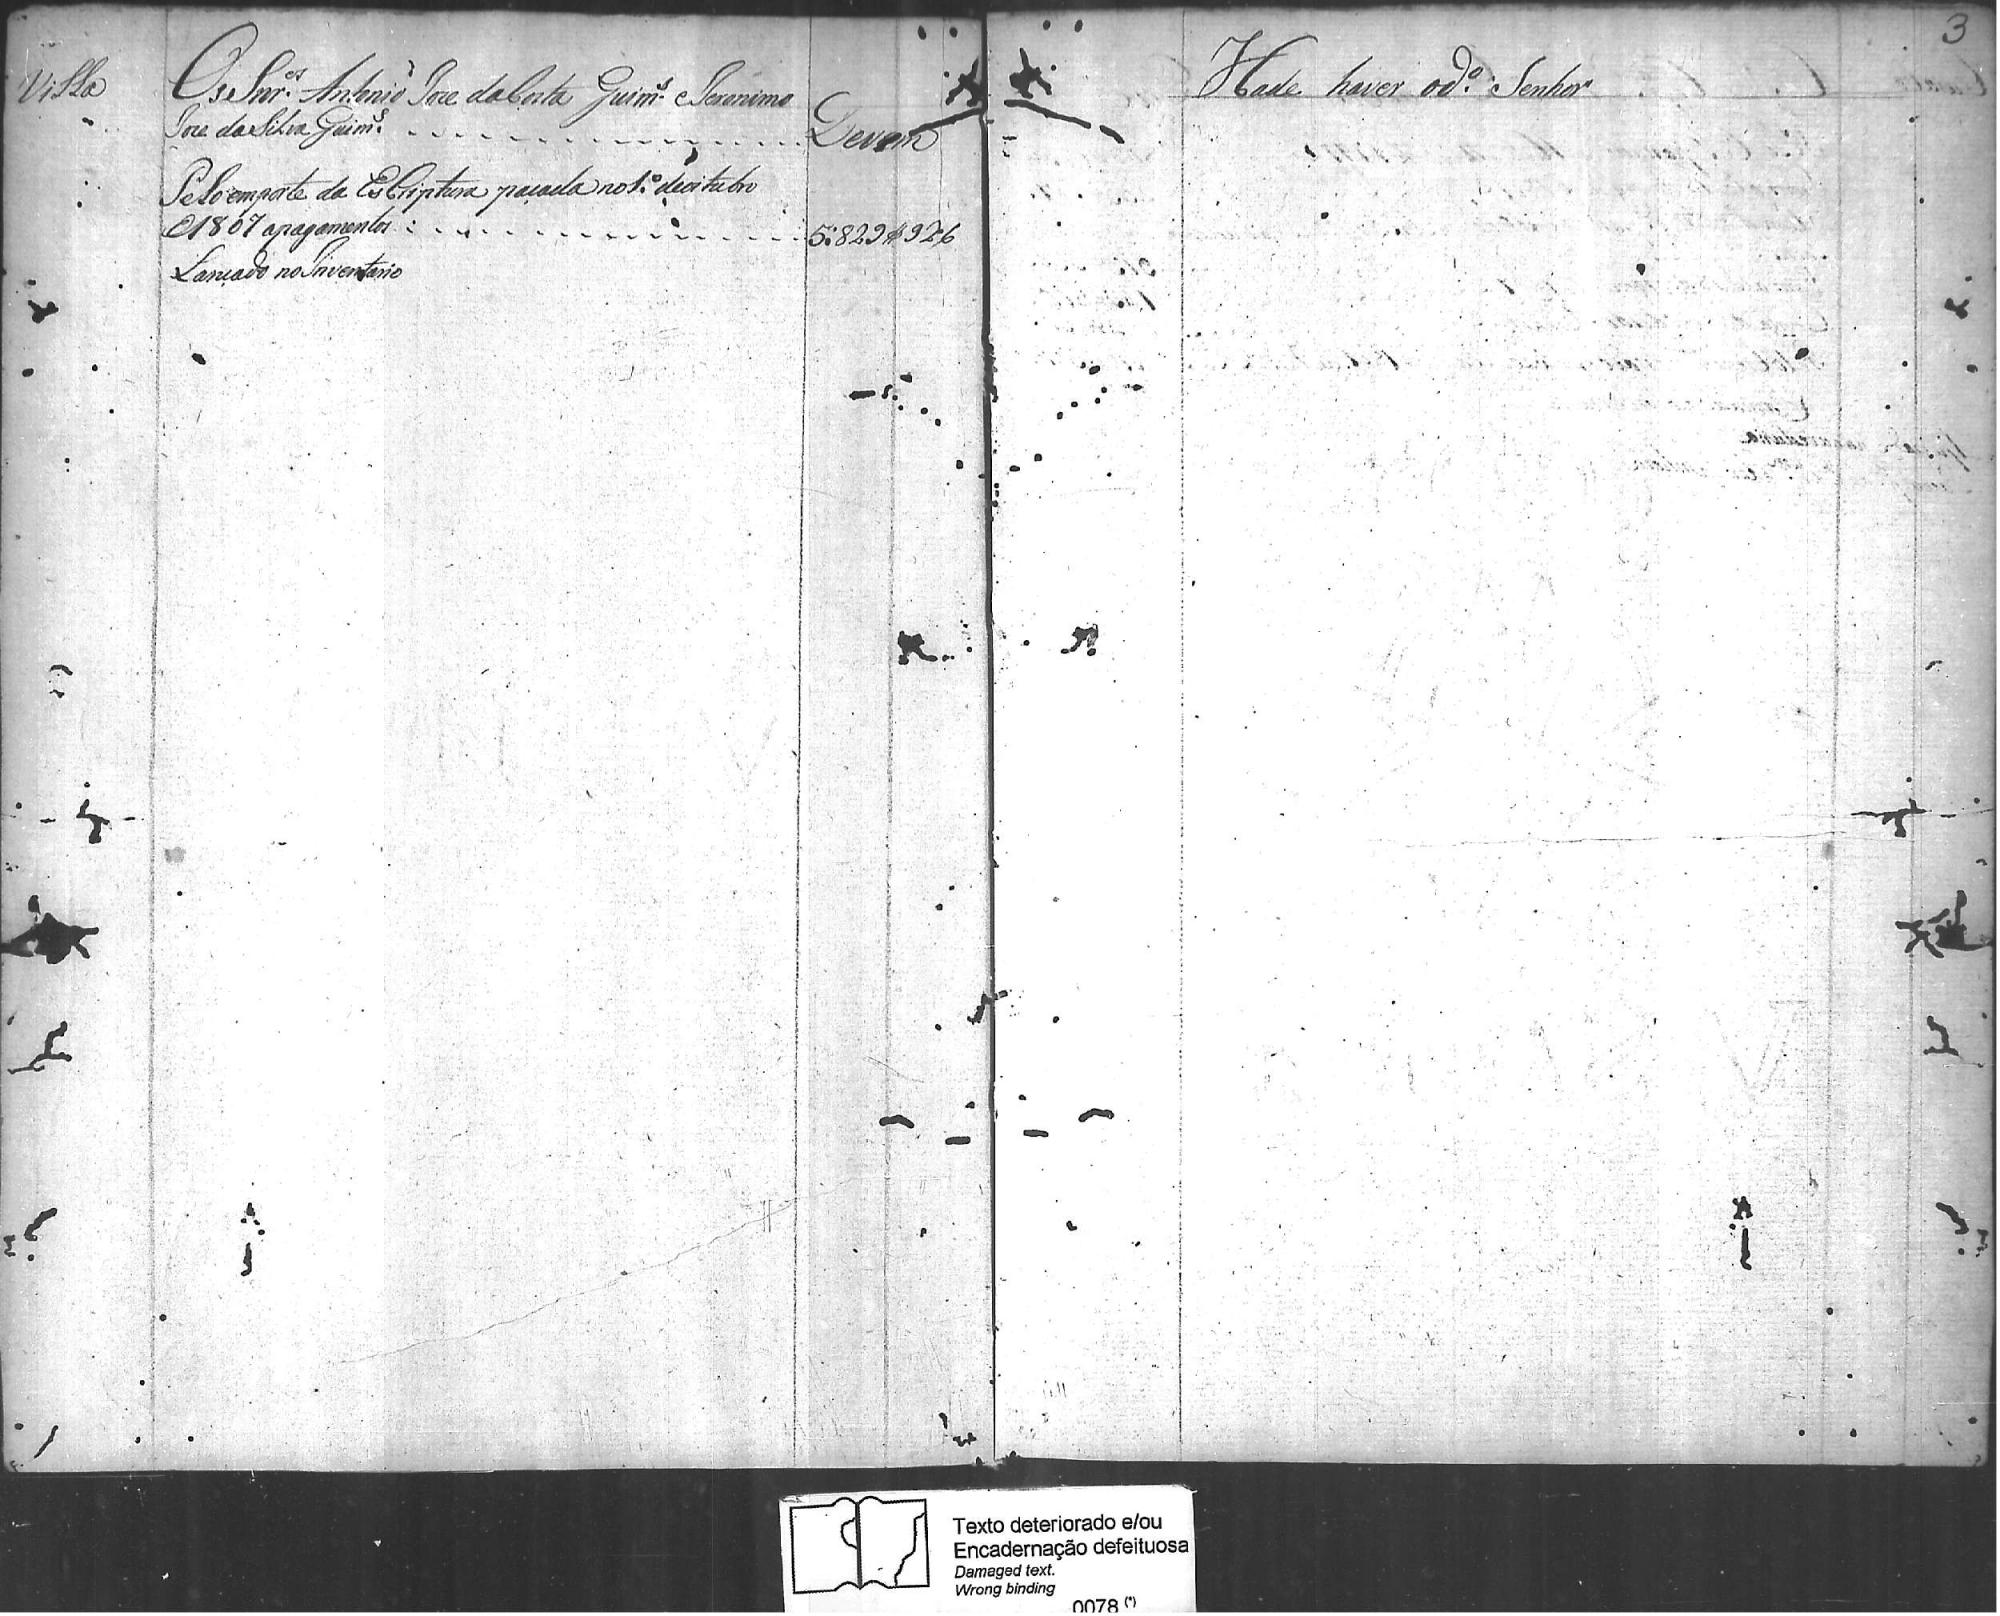 Villa
Os Snr.es Antonio Joze da Costa Guim.s e Jeronimo
Joze da Silva Guim.s Devem
Pelo emporte da EsCriptura paçada no 1.º deoitubro
E1807 apagamentos 5:829$926
Lançado no Inventario
3
Hade haver od.º Senhor
Texto deteriorado e/ou
Encadernação defeituosa
Damaged text.
Wrong binding
0078 (*)